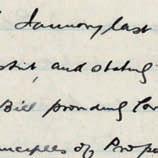 January last
and stating
Bill providing for
principles of Propo